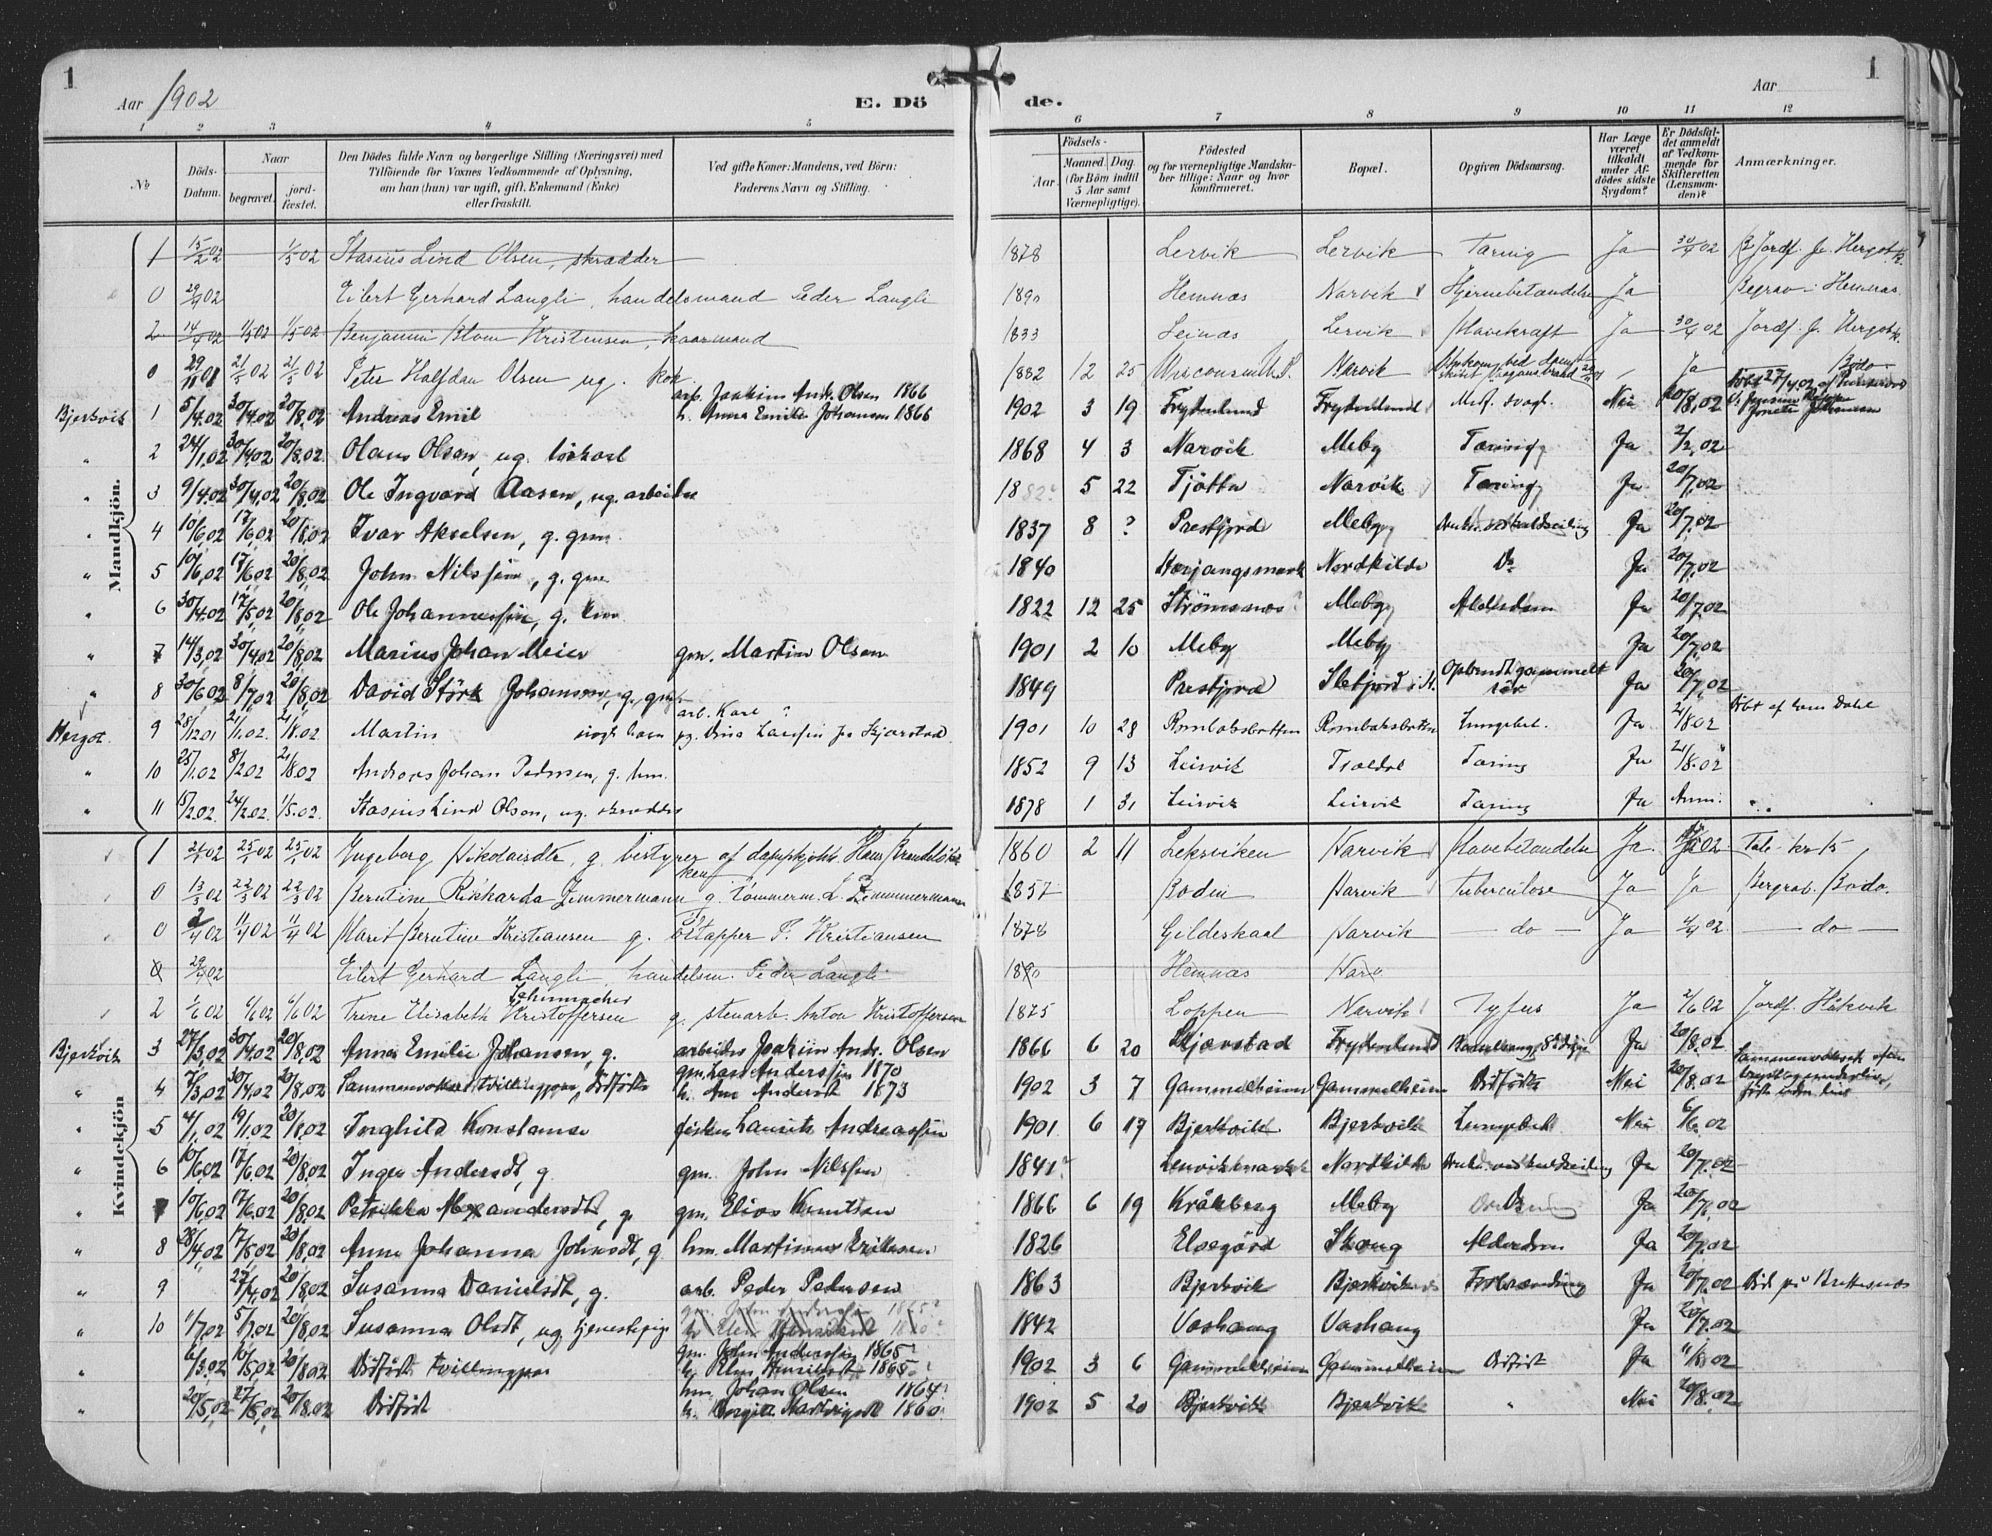 1
Aar 1902
E. Dö de.
Aar
1
1 2 3 4 5 6 7 8 9 10 11 12
No
Döds-Datum.
Naar
begravet.
jord-fæstet.
Den Dödes fulde Navn og borgerlige Stilling (Næringsvei) med
Tilföiende for Voxnes Vedkommende af Oplysning,
om han (hun) var ugift, gift, Enkemand (Enke)
eller fraskilt.
Ved gifte Koner: Mandens, ved Börn:
Faderens Navn og Stilling.
Födsels-
Aar.
Maaned. Dag.
(for Börn indtil
5 Aar samt
Værnepligtige).
Födested
og for værnepligtige Mandska-
ber tillige: Naar og hvor
konfirmeret.
Bopæl.
Opgiven Dödsaarsag.
Har Læge
været
tilkaldt
under Af-
dödes sidste
Sygdom?
Er Dödsfal-
det anmeldt
af Vedkom-
mende for
Skifteretten
(Lensman-
den)?
Anmærkninger.
Mandkjön.
1 15/2 02 1/5 02 Stasius Lind Olsen, skrædder 1878 Lervik Lervik Tæring Ja 30/4 02 Jordf. f. Hergot k.
0 29/4 02 Eilert Gerhard Langli, handelsmand Peder Langli 1890 Hemnæs Narvik Hjernebetændelse Ja Begrav. i Hemnæs.
2 14/4 02 1/5 02 1/5 02 Benjamin Blom Kristensen, kaarmand 1833 Leinæs Lervik Mavekræft Ja 30/4 02 Jordf. f. Hergot k.
0 29/11 01 21/5 02 21/5 02 Peter Halfdan Olsen ug. kok 1882 12 25 Narvik Ja Bodö
Bjerkvik 1 5/4.02 30/4.02 20/8.02 Andreas Emil arb. Joakim Andr. Olsen 1866
h. Anna Emilie Johansen 1866 1902 3 19 Frydenlund Frydenlund Med. svagh. Nei 20/8.02
" 2 24/1.02 30/4.02 20/8.02 Olaus Olsen, ug. löskarl 1868 4 3 Narvik Meby Tæring Ja 2/2.02
" 3 9/4.02 30/4.02 20/8.02 Ole Ingvard Aasen, ug. arbeider 1882? 5 22 Tjøtta Narvik Tæring Ja 20/7.02
" 4 10/6.02 17/6.02 20/8.02 Ivar Akselsen, g. gm. 1837 8 ? Prestjord Meby Druknet ved kuldseiling Ja 20/7.02
" 5 10/6.02 17/6.02 20/8.02 John Nilssen, g. gm. 1840 Herjangsmark Nordkilde Do Ja 20/7.02
" 6 30/4.02 17/5.02 20/8.02 Ole Johannessen, g. km 1822 12 25 Strømsnes? Meby Aldersdom Ja 20/7.02
" 7 14/3.02 30/4.02 20/8.02 Marius Johan Meier gm. Martin Olsen 1901 2 10 Meby Meby Ja 20/7.02
" 8 30/6.02 8/7.02 20/8.02 David Störk Johansen, g. gm. 1849 Prestjord Opbrudt gammelt sår Ja 20/7.02
Hergot. 9 28/12 01 21/1.02. 21/8.02 Martin uægte barn arb. Karl ?
pg. Dina Larssen fra Skjærstad 1901 10 28 Rombaksbotten Rombaksbotten Lungebet. Ja 21/8.02 Döbt af Dahl
" 10 25/1.02 8/2.02 21/8.02 Andreas Johan Pedersen, g. hm. 1852 9 13 Leirvik Trældal Tæring Ja 21/8.02
" 11 15/2.02. 24/2.02. 1/5.02. Stasius Lind Olsen, ug. skrædder 1878 1 31 Leirvik Leirvik Tæring Ja Anm.
Kvindekjön
1 25/5 02 25/5 02 Ingeborg Nikolaisdtr, g. bestyrer af dampkjökken Hans 1860 2 11 Leksviken Narvik Mavebetændelse Ja Tale kr 15
0 13/3 02 22/3 02 22/3 02 Berntine Rikharda Zimmermann g. tömmerm. L. Zimmermann 1857 Bodin Narvik Tuberculose Ja Ja Begrav. Bodö.
0 2/4 02 11/4 02 11/4 02 Marit Berntine Kristiansen g. öltapper P. Kristiansen 1878 Gildeskaal Narvik — do — Ja 2/4 02 — do —
0 29/4 02 Eilert Gerhard Langli handelsm. Peder Langli 1890 Hemnæs Narv
2 1/6 02 6/6 02 6/6 02 Trine Elisabeth Schumacher Kristoffersen g. stenarb. Anton Kristoffersen 1875 Loppen Narvik Tyfus Ja 2/6 02 Jordf. Håkvik
Bjerkvik 3 27/3.02 30/4.02 20/8.02 Anna Emilie Johansen, g. arbeider Joakim Andr. Olsen 1866 6 20 Skjærstad Frydenlund Ja 20/8.02
" 4 7/3.02 30/4.02 20/8.02 Sammenvokset tvillingpar, dödfödt gm. Lars Anderssen 1870
h. Ane Andersdt 1873 1902 3 7 Gammelheimen Gammelheimen Dödfödt Nei 20/8.02 Sammenvokset
" 5 4/1.02 19/1.02 20/8.02 Inghild Konstanse fisker Laurits Andreassen 1901 6 17 Bjerkvik Bjerkvik Lungebet. Nei 6/6.02
" 6 10/6.02 17/6.02 20/8.02 Inger Andersdt, g. gm. John Nilssen 1841? Leirvikmark Nordkilde Druknet ved kuldseiling Ja 20/7.02
" 7 10/6.02 17/6.02 20/8.02 Petrikka Alexandersdt, g. gm. Elias Knutsen 1866 6 19 Kråkberg Meby Do Ja 20/7.02
" 8 28/4.02 17/5.02 20/8.02 Anna Johanna Johnsdt, g. hm. Martinus Eriksen 1826 Elsegård Skoug Alderdom Ja 20/7.02
" 9 27/4.02 20/8.02 Susanna Danielsdt, g. arb. Peder Pedersen 1863 Bjerkvik Bjerkvik Forbrænding Ja 20/7.02 Död på Brettesnæs
" 10 1/7.02 5/7.02 20/8.02 Susanna Olsdt, ug. tjenestepige 1842 Vashaug Vashaug Ja 20/7.02
" 6/3.02 10/5.02 20/8.02 Dödfödt tvillingpar gm. John Anderssen 1865?
h. Elen Henriksdt 1865? 1902 3 6 Gammelheimen Gammelheimen Dödfödt Ja
" 20/5.02 27/5.02 20/8.02 Dödfödt hm. Johan Olsen 1864?
h. Birgit Hartvigsdt 1860? 1902 5 20 Bjerkvik Bjerkvik " Nei 20/8.02